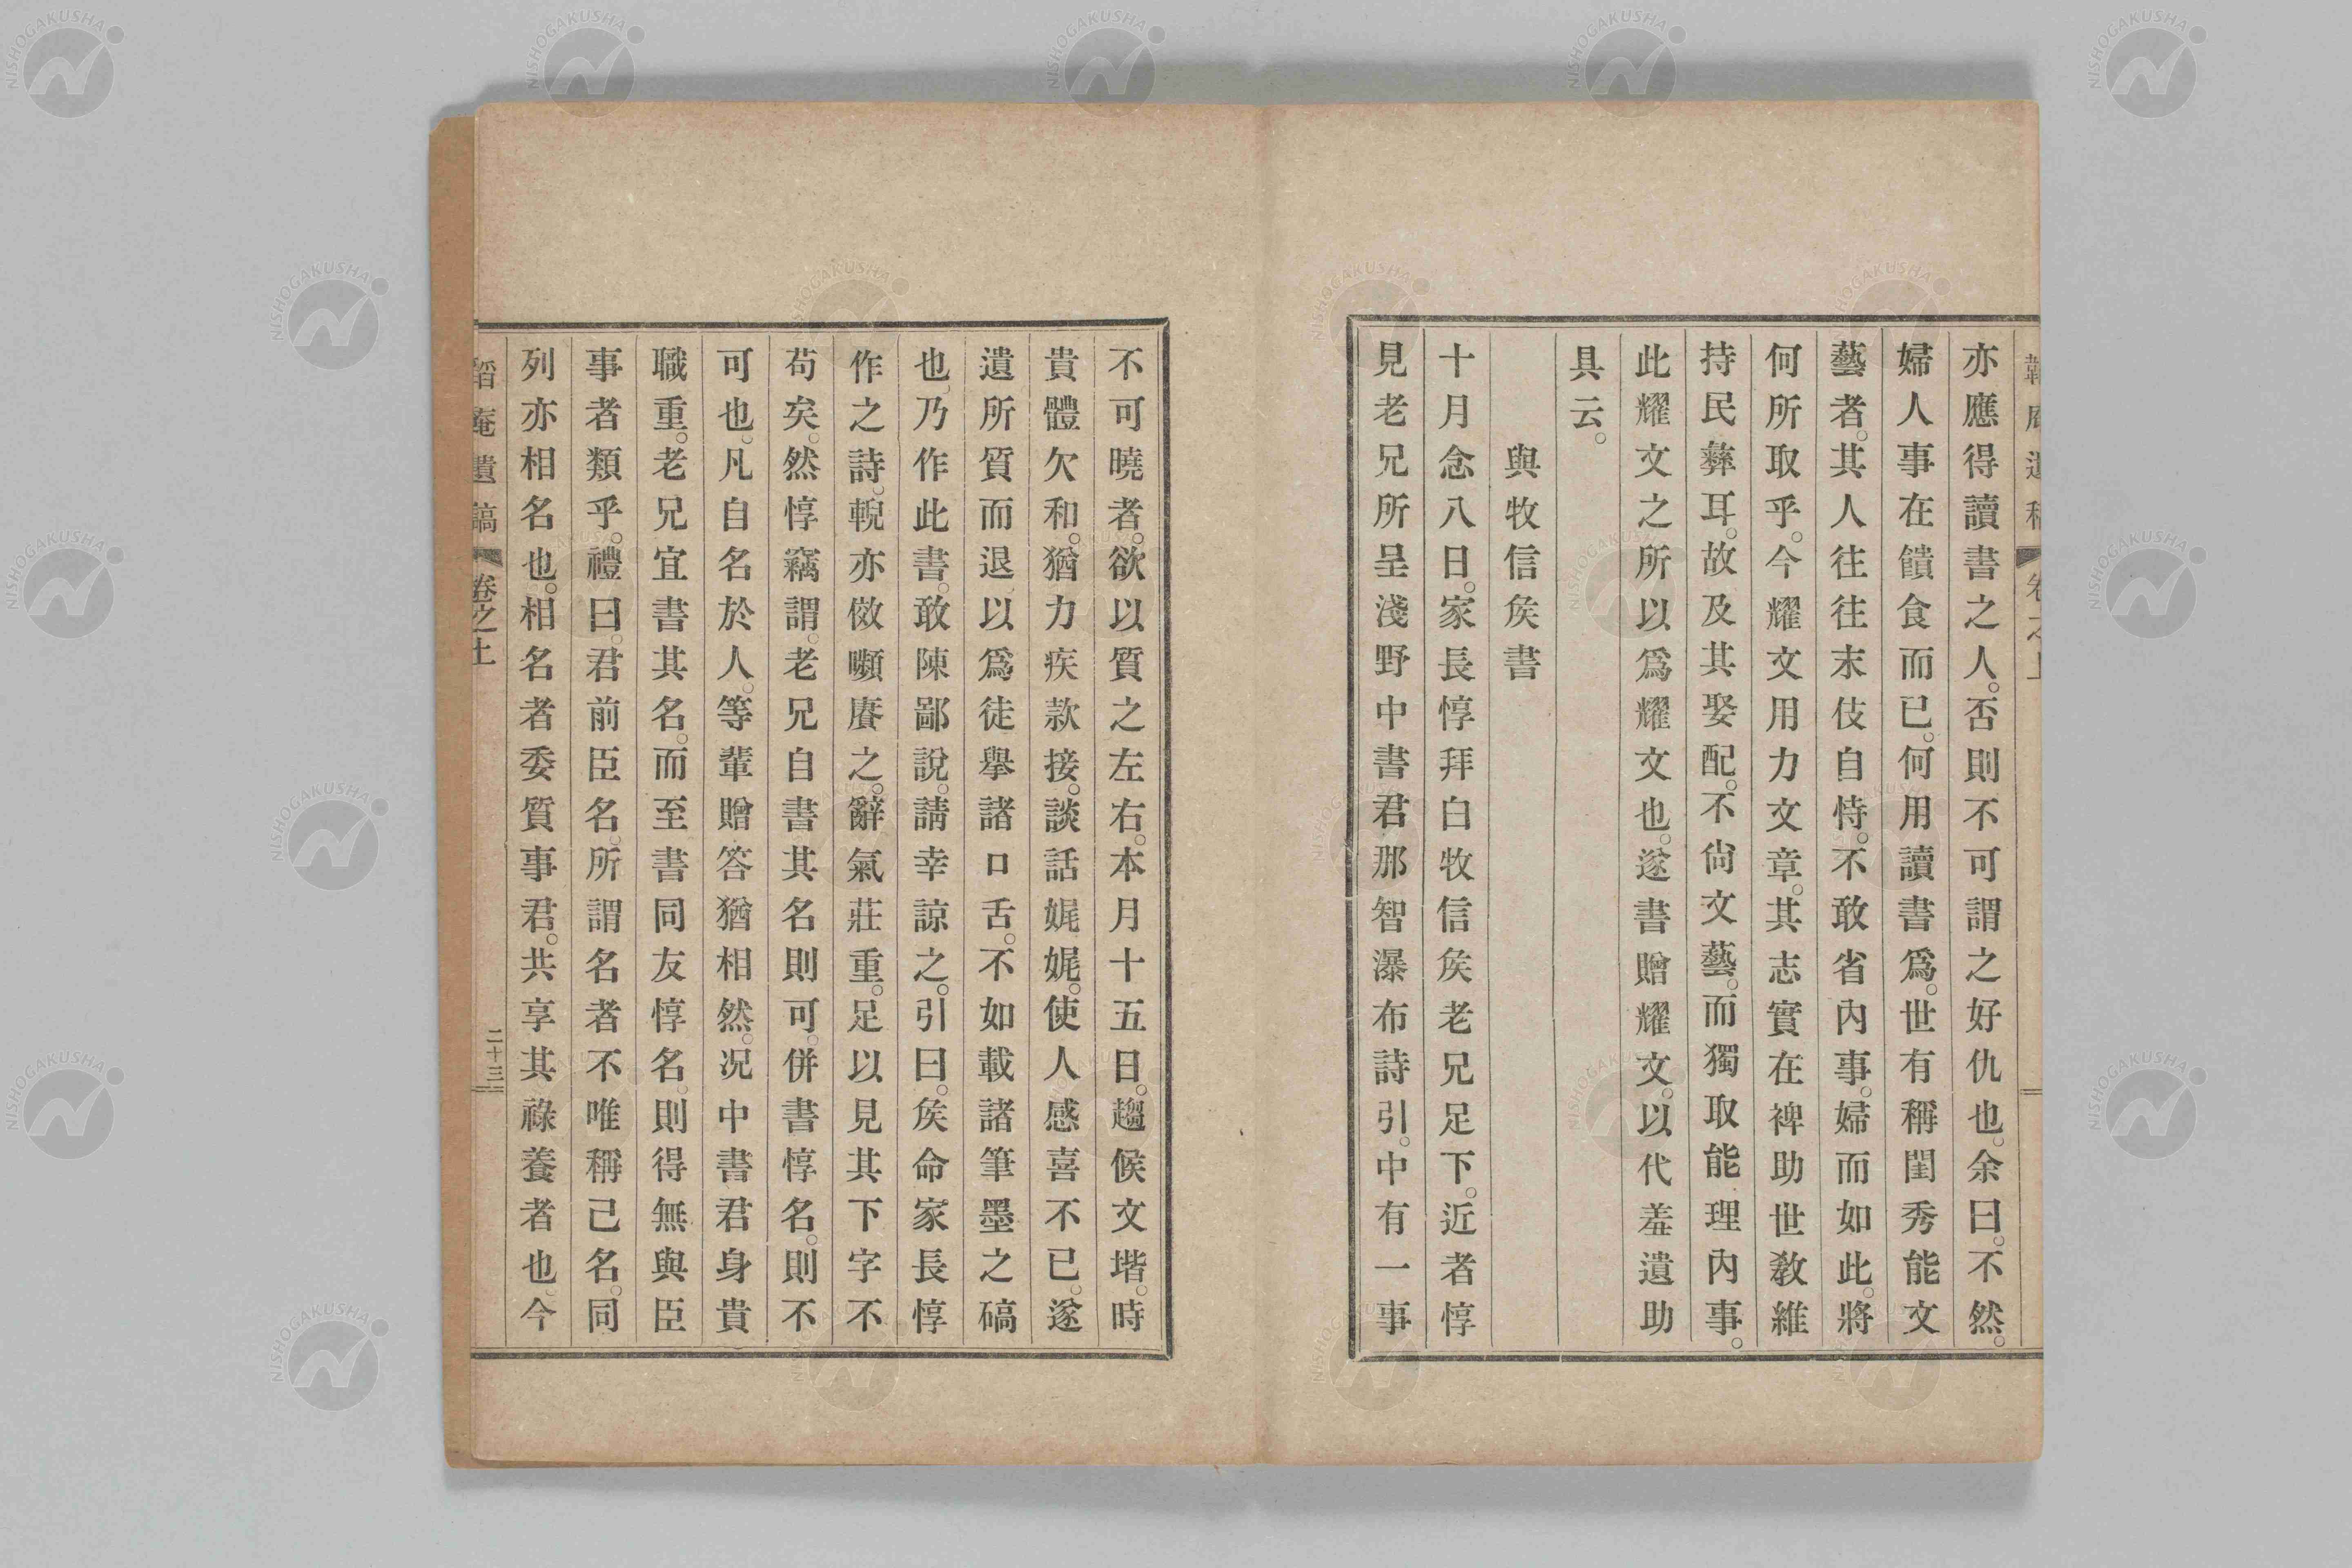 亦應得讀書之人。否則不可謂之好仇也。余曰。不然。
婦人事在饋食而已。何用讀書爲。世有稱閨秀能文
藝者。其人往往末伎自恃。不敢省內事。婦而如此。將
何所取乎。今耀文用力文章。其志實在裨助世敎維
持民彝耳。故及其娶配。不尙文藝。而獨取能理內事。
此耀文之所以爲耀文也。遂書贈耀文。以代羞遺助
具云。
與牧信矦書
十月念八日。家長惇拜白牧信矦老兄足下。近者惇
見老兄所呈淺野中書君那智瀑布詩引。中有一事
不可曉者。欲以質之左右。本月十五日。趨候文堦。時
貴體欠和。猶力疾款接。談話娓娓。使人感喜不已。遂
遺所質而退以爲徒擧諸口舌。不如載諸筆墨之碻
也。乃作此書。敢陳鄙說。請幸諒之。引曰。矦命家長惇
作之詩。輗亦傚嚬賡之。辭氣莊重。足以見其下字不
苟矣。然惇竊謂。老兄自書其名則可。併書惇名。則不
可也。凡自名於人。等輩贈答猶相然。况中書君身貴
職重。老兄宜書其名。而至書同友惇名。則得無與臣
事者類乎。禮曰。君前臣名。所謂名者不唯稱己名。同
列亦相名也。相名者委質事君。共享其祿養者也。今
韜庵遺稿 卷之上 二十三
NISHOGAKUSHA